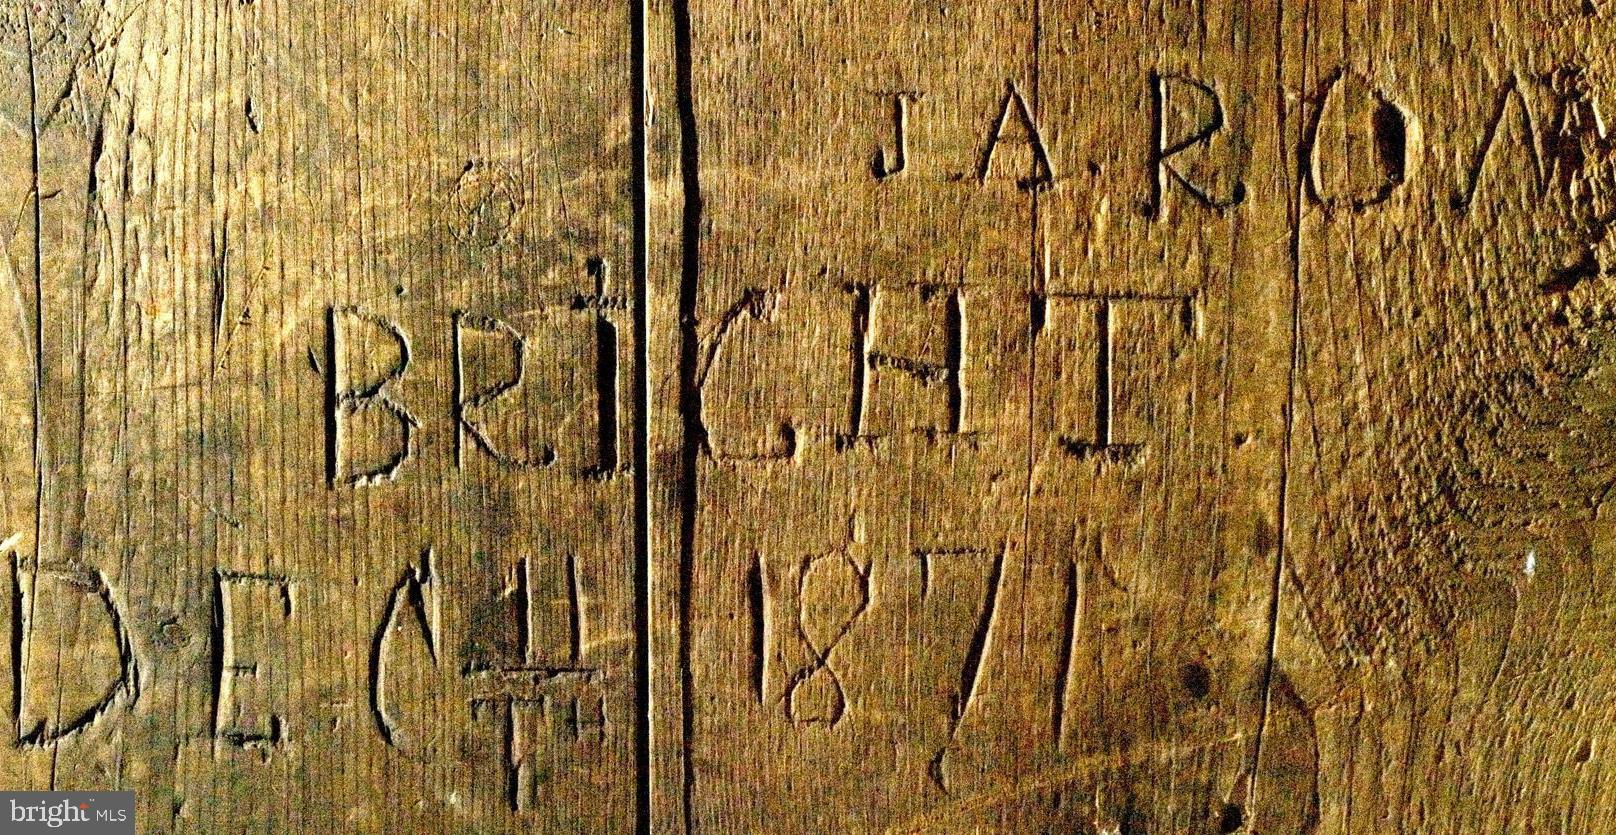 JARON
BRIGHT
DEC 4TH 1871
bright MLS